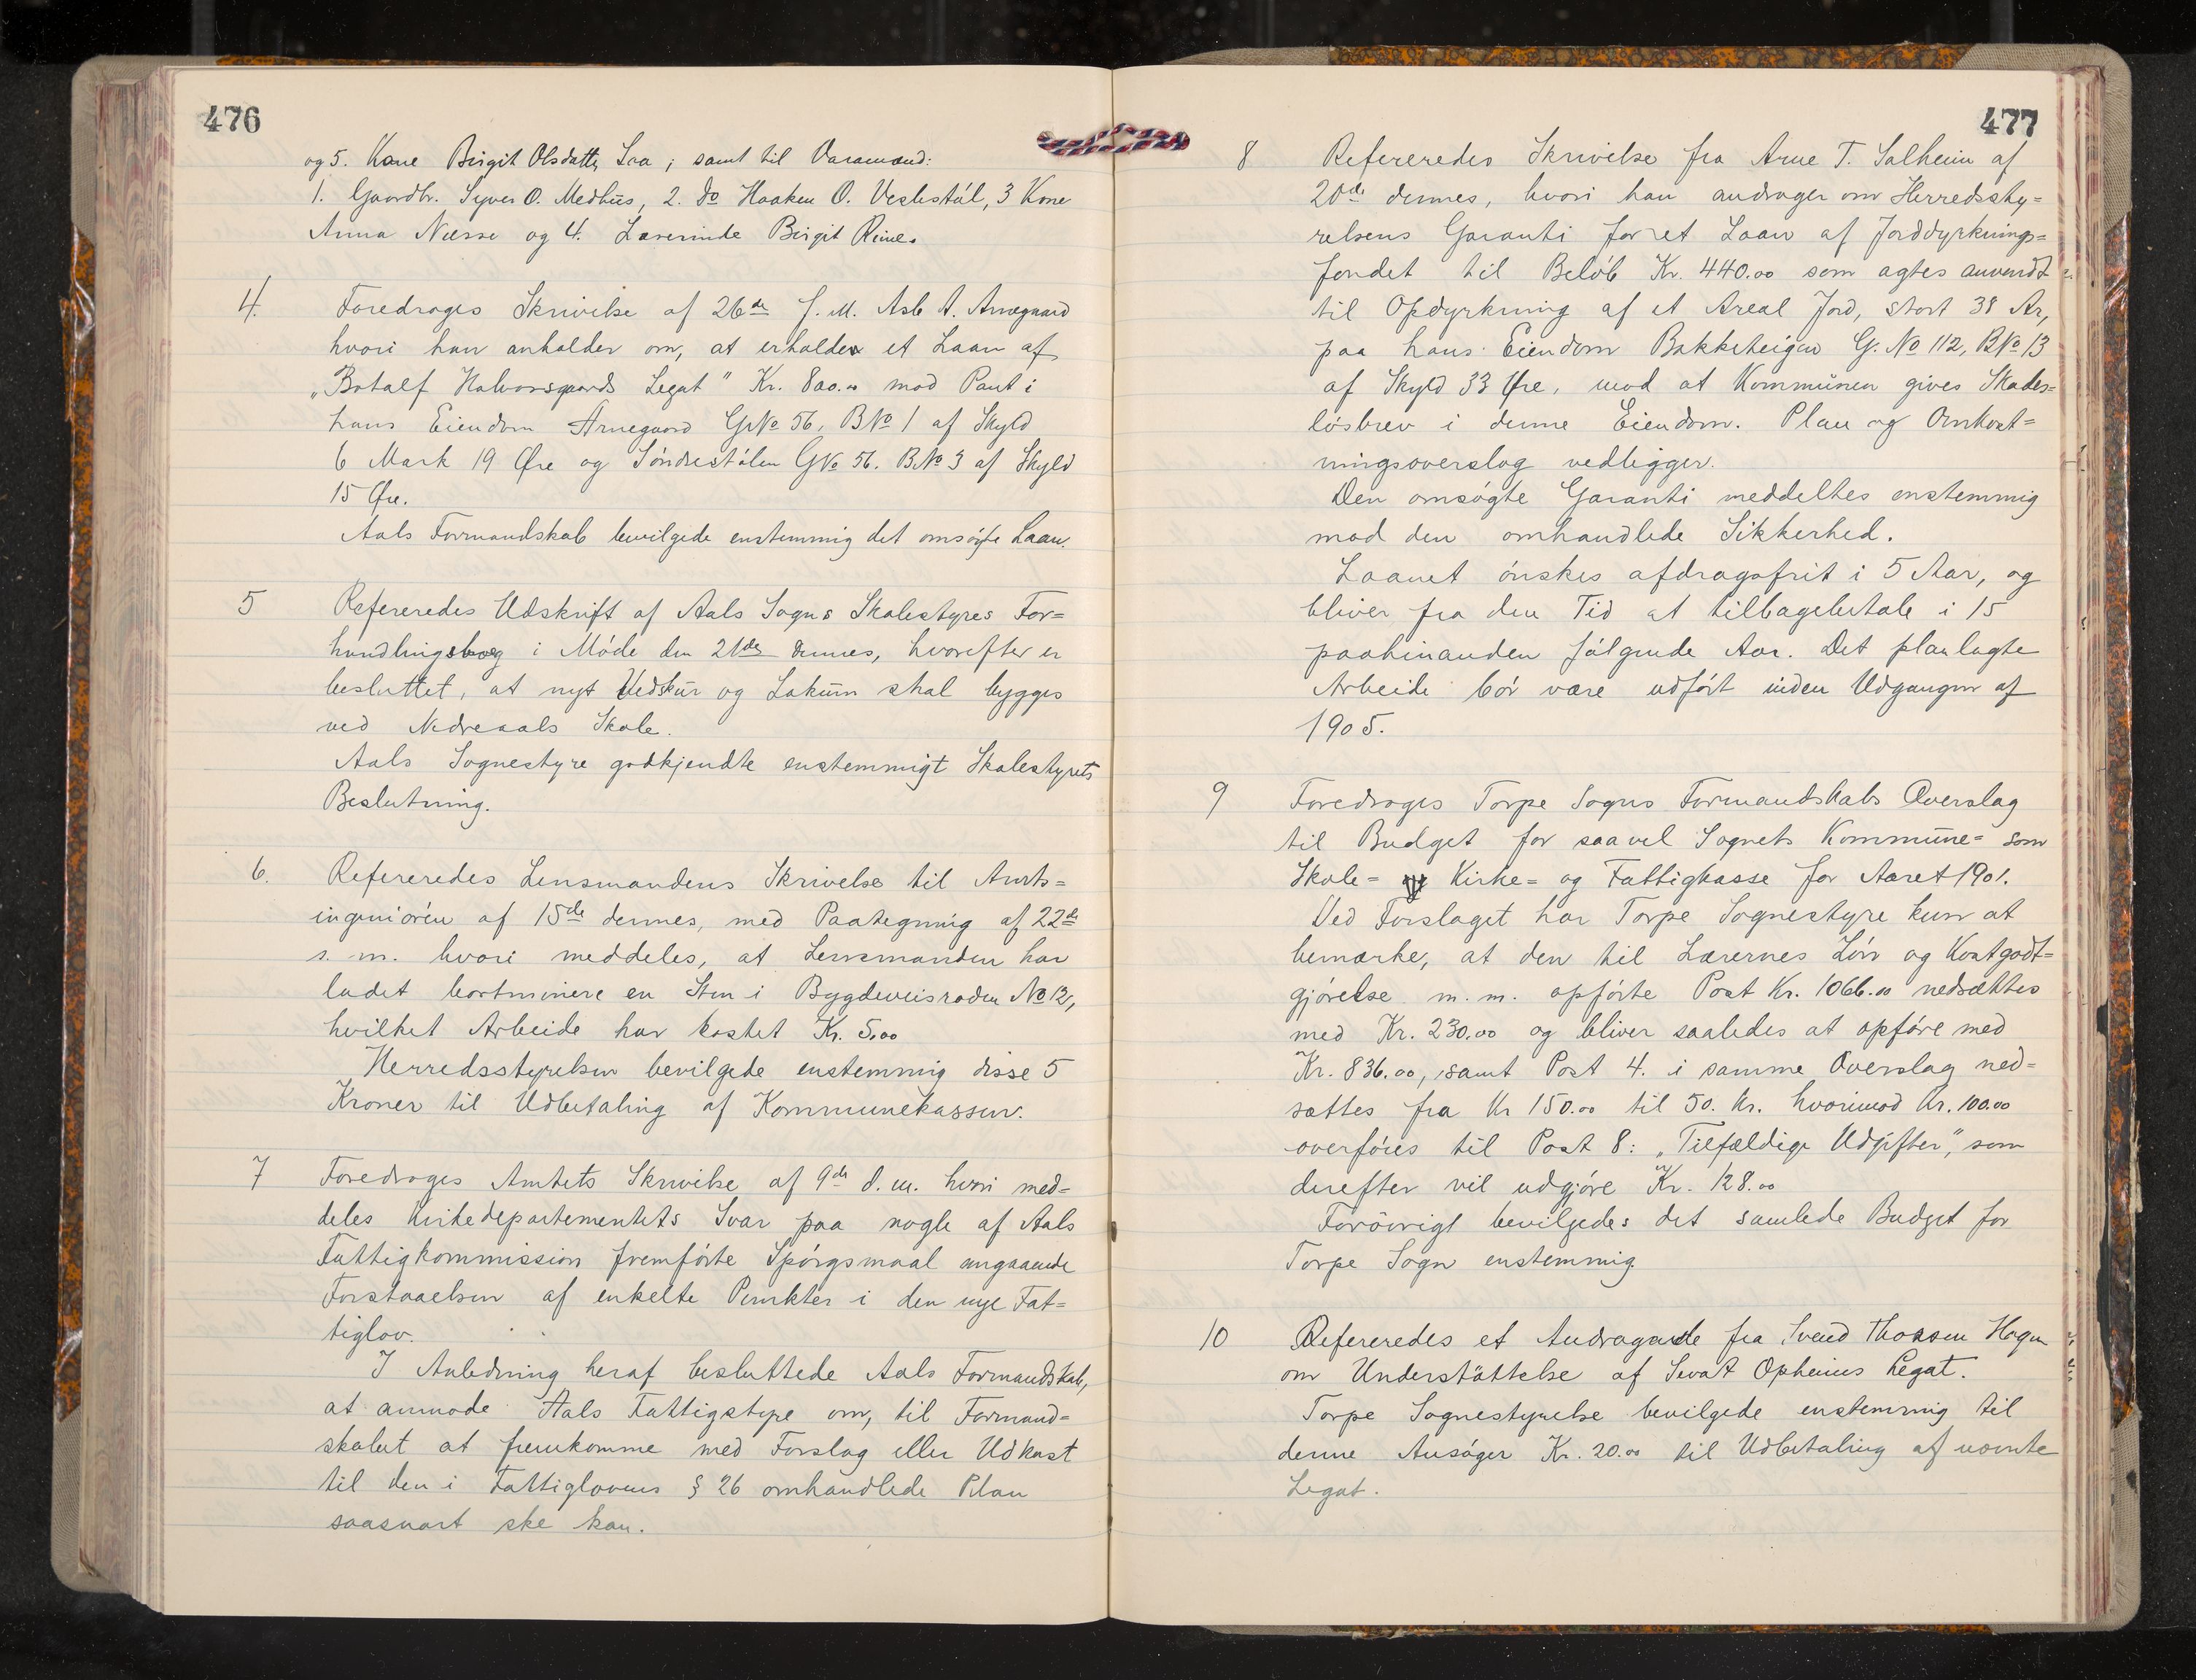 476
og 5. Kone Birgit Olsdatter Lra; samt til Varamænd:
1. Gaardbr. Syver O. Medhus, 2. do Haaken O. Veslestøl, 3 Kone
Anna Næsse og 4. Lærerinde Birgit Reine.
4. Foredroges Skrivelse af 26de f. M. Asle A. Arnegaard
hvori han anholder om, at erholde et Laan af
„Botolf Halvorsgaards Legat" Kr. 800.00 mod Pant i
hans Eiendom Arnegaard GNo 56, BNo 1 af Skyld
6 Mark 19 Øre og Søndrestølen GNo 56. BNo 3 af Skyld
15 Øre.
Aals Formandskab bevilgede enstemmig det omsøgte Laan.
5 Refereredes Udskrift af Aals Sogns Skolestyres For=
handlingsbog i Møde den 21de dennes, hvorefter er
besluttet, at nyt Vedskur og Lokum skal bygges
ved Nedreaals Skole.
Aals Sognestyre godkjendte enstemmigt Skolestyrets
Beslutning.
6. Refereredes Lensmandens Skrivelse til Amts=
ingeniøren af 15de dennes, med Paategning af 22de
s. m. hvori meddeles, at Lensmanden har
ladet bortminere en Sten i Bygdeveisroden No 12,
hvilket Arbeide har kostet Kr. 5.00
Herredsstyrelsen bevilgede enstemmig disse 5
Kroner til Udbetaling af Kommunekassen.
7 Foredroges Amtets Skrivelse af 9de d. m. hvori med=
deles Kirkedepartementets Svar paa nogle af Aals
Fattigkommission fremførte Spørgsmaal angaaende
Forstaaelsen af enkelte Punkter i den nye Fat=
tiglov.
I Anledning heraf besluttede Aals Formandskab,
at anmode Aals Fattigstyre om, til Formand=
skabet at fremkomme med Forslag eller Udkast
til den i Fattiglovens § 26 omhandlede Plan
saasnart ske kan.
477
8 Refereredes Skrivelse fra Arne T. Solheim af
20de dennes, hvori han andrager om Herredssty=
relsens Garanti for et Laan af Jorddyrknings=
fondet til Beløb Kr. 440.00 som agtes anvendt
til Opdyrkning af et Areal Jord, stort 38 Ar,
paa hans Eiendom Bakketeigen G. No 112, BNo 13
af Skyld 33 Øre, mod at Kommunen gives Skades=
løsbrev i denne Eiendom. Plan og Omkost=
ningsoverslag vedligger.
Den omsøgte Garanti meddeltes enstemmig
mod den omhandlede Sikkerhed.
Laanet ønskes afdragsfrit i 5 Aar, og
bliver fra den Tid at tilbagebetale i 15
paahinanden følgende Aar. Det planlagte
Arbeide bør være udført inden Udgangen af
1905.
9 Foredroges Torpe Sogns Formandskabs Overslag
til Budget for saavel Sognets Kommune= som
Skole= Kirke= og Fattigkasse for Aaret 1901.
Ved Forslaget har Torpe Sognestyre kun at
bemærke, at den til Lærernes Løn og Kostgodt=
gjørelse m. m. opførte Post Kr. 1066.00 nedsættes
med Kr. 230.00 og bliver saaledes at opføre med
Kr. 836.00, samt Post 4. i samme Overslag ned=
sættes fra Kr 150.00 til 50. Kr. hvorimod Kr. 100.00
overføres til Post 8: „Tilfældige Udgifter", som
derefter vil udgjøre Kr. 128.00
Forøvrigt bevilgedes det samlede Budget for
Torpe Sogn enstemmig.
10 Refereredes et Andragende fra Svend Thossen Hagen
om Understøttelse af Sevat Opheims Legat.
Torpe Sognestyrelse bevilgede enstemmig til
denne Ansøger Kr. 20.00 til Udbetaling af nævnte
Legat.